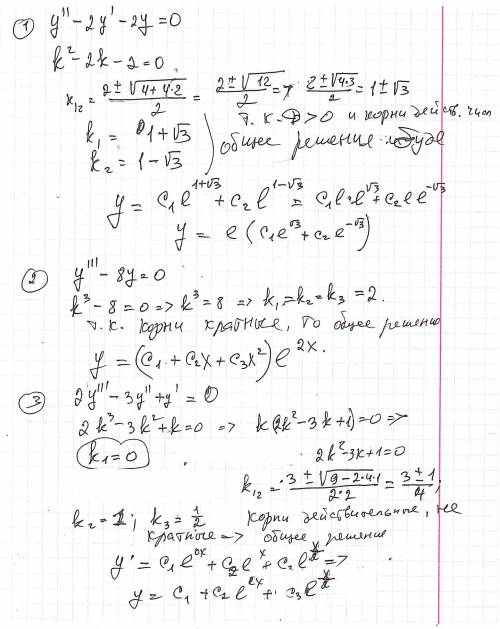 ① y'' - 2y' - 2y = 0
k² - 2k - 2 = 0
k₁₂ = (2 ± √(4 + 4·2))/2 = (2 ± √12)/2 = (2 ± √(4·3))/2 = 1 ± √3
k₁ = 1 + √3
т.к. D > 0 и корни действ. числ
k₂ = 1 - √3
общее решение
y = c₁e^(1+√3) + c₂e^(1-√3) = c₁e·e^(√3) + c₂e e^(-√3)
y = e(c₁e^(√3) + c₂e^(-√3))
② y''' - 8y = 0
k³ - 8 = 0 => k³ = 8 => k₁ = k₂ = k₃ = 2.
т.к. корни кратные, то общее решение
y = (c₁ + c₂x + c₃x²)e^(2x).
③ 2y''' - 3y'' + y' = 0
2k³ - 3k² + k = 0 => k(2k² - 3k + 1) = 0 =>
k₁ = 0
2k² - 3k + 1 = 0
k₁₂ = (3 ± √(9 - 2·4·1))/(2·2) = (3 ± 1)/4;
k₂ = 1; k₃ = 1/2 корни действительные, не
кратные => общее решение
y' = c₁e^(0x) + c₂e^x + c₂e^(x/2) =>
y = c₁ + c₂e^(2x) + c₃e^(x/2)